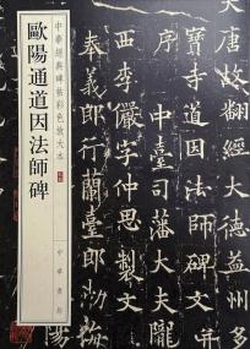 寶寺道因法師碑文并
中臺司藩大夫隴
李儼字仲思製文
奉義郎行蘭臺郎渤
中華經典碑帖彩色放大本
歐陽通道因法師碑
中華書局